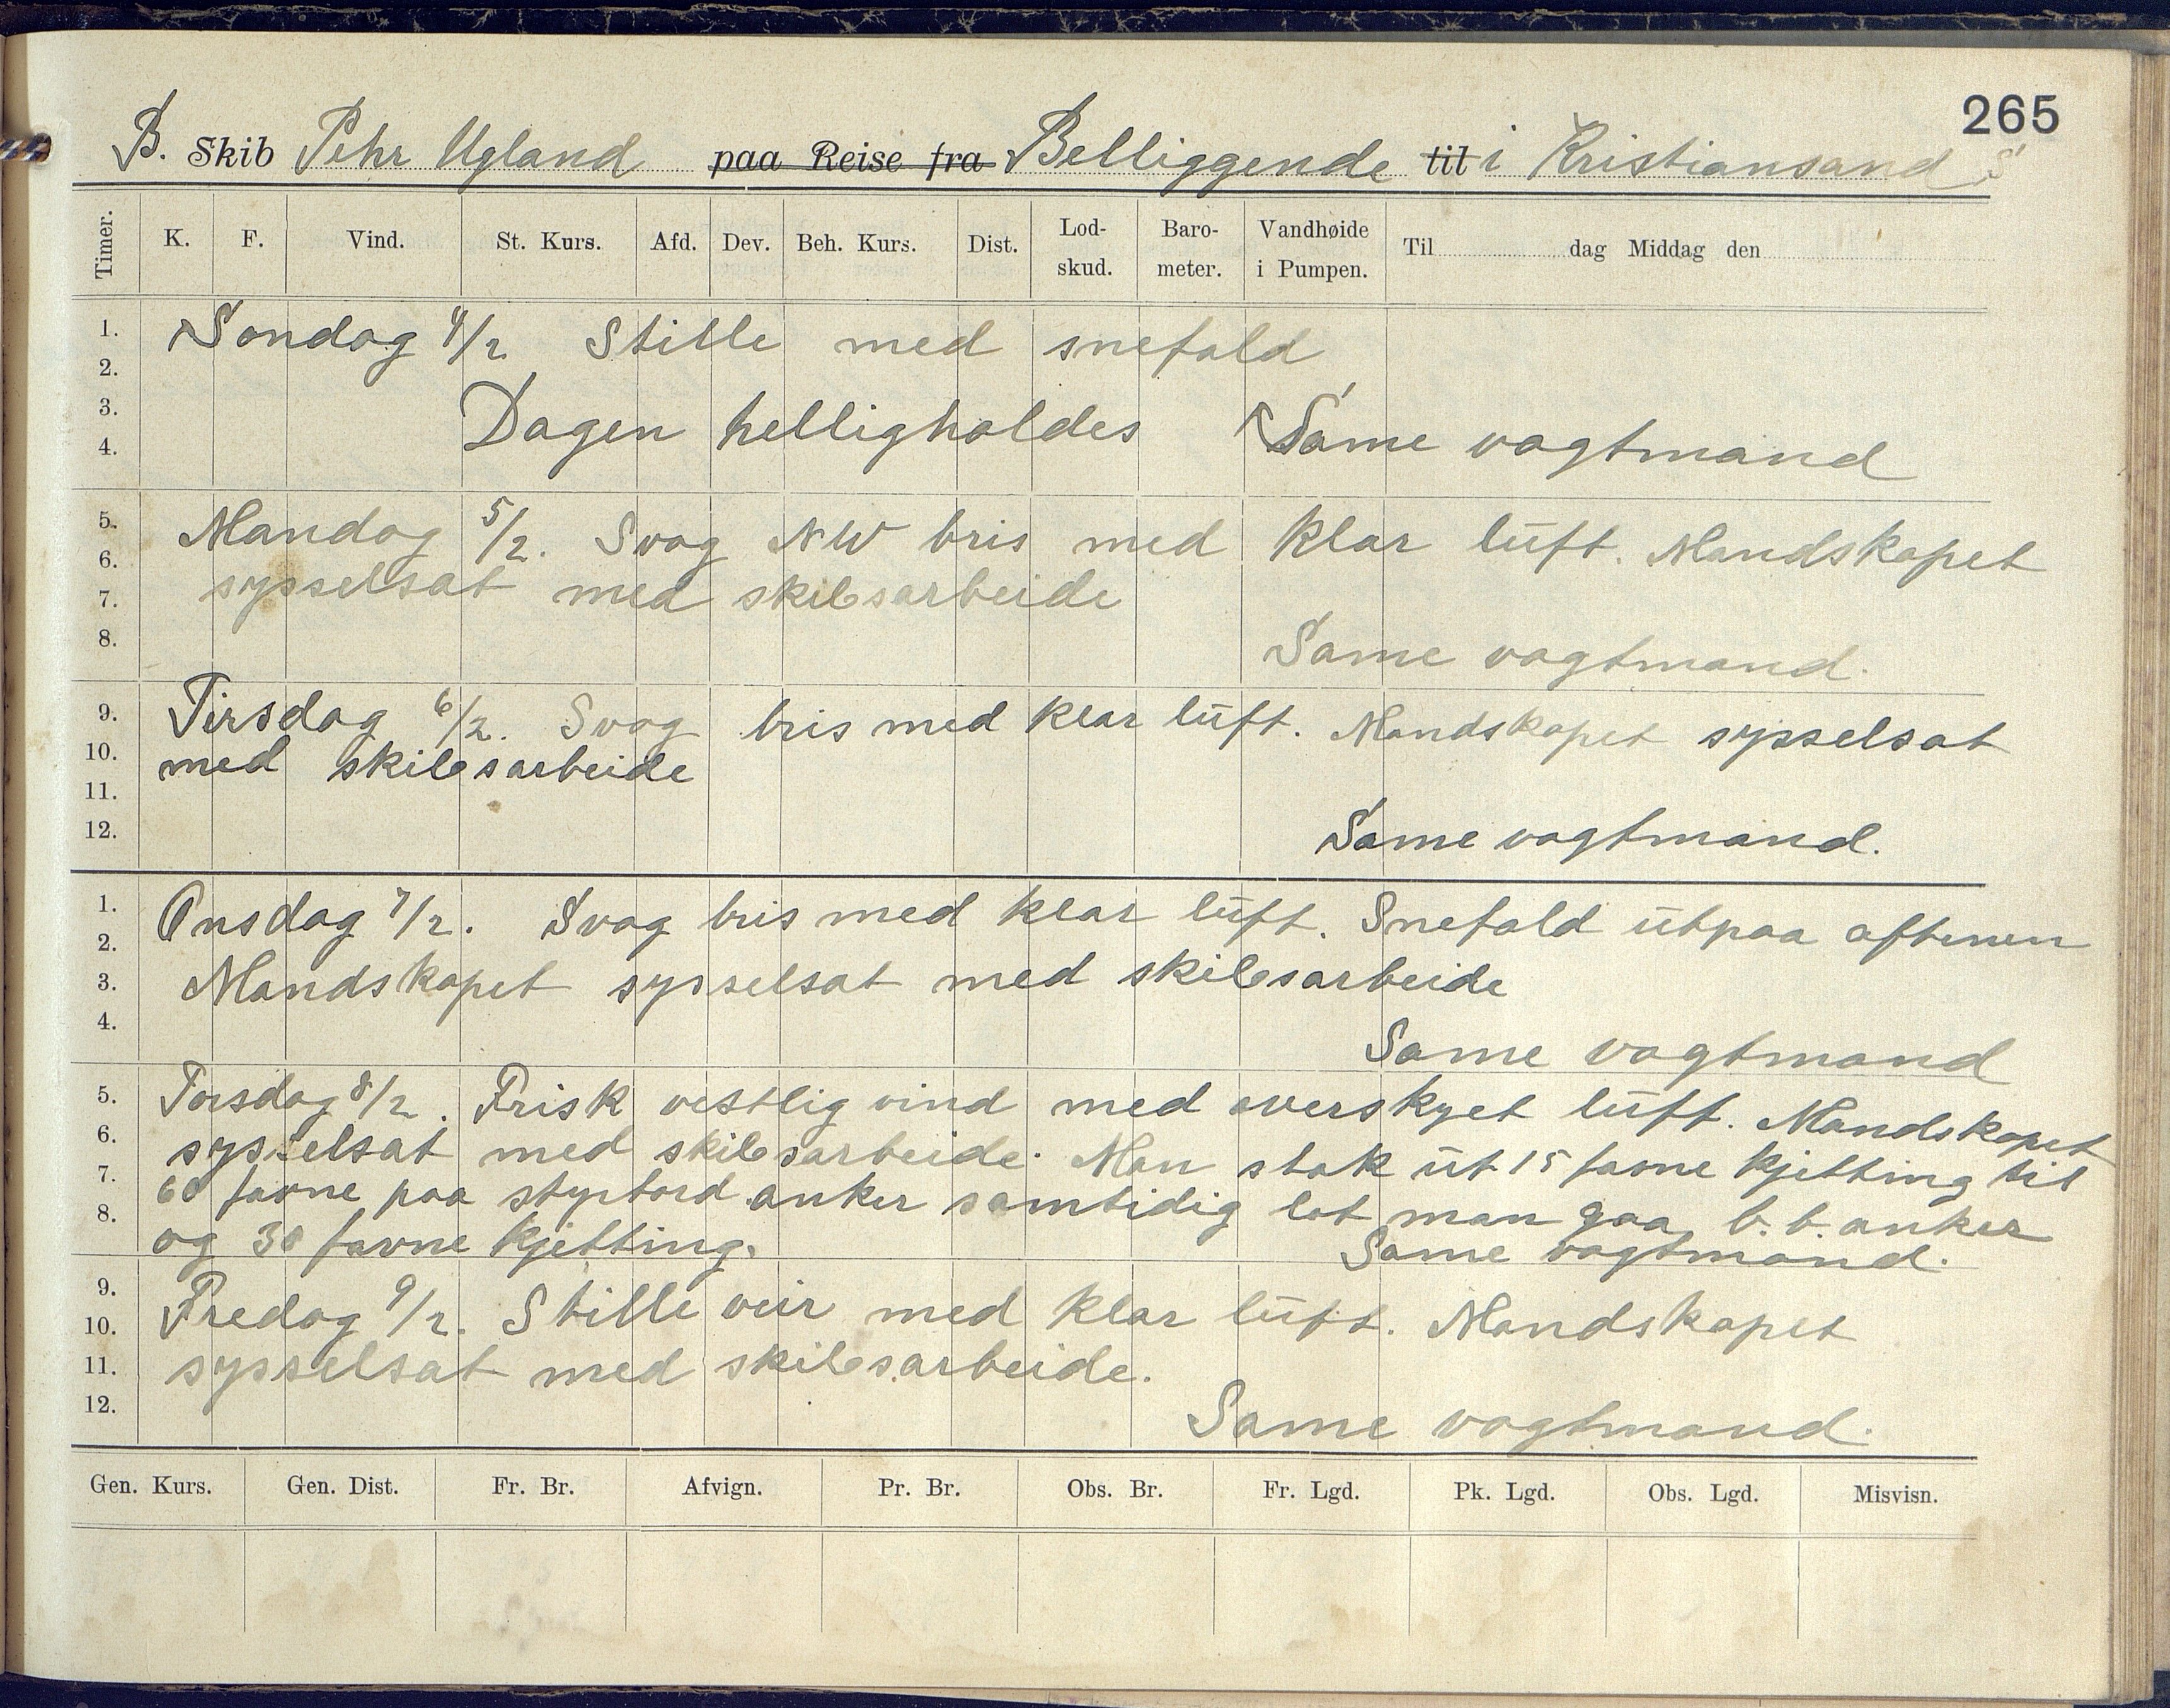 265
B. Skib Pehr Ugland paa Reise fra Belliggende til i Kristiansand S
Timer. K. F. Vind. St. Kurs. Afd. Dev. Beh. Kurs. Dist. Lod-skud. Baro-meter. Vandhøide i Pumpen. Til dag Middag den
1.
2.
3.
4.
Søndag 4/2 Stille med snefald
Dagen helligholdes Same vagtmand
5.
6.
7.
8.
Mandag 5/2. Svag NW bris med klar luft. Mandskapet
sysselsat med skibsarbeide
Same vagtmand.
9.
10.
11.
12.
Tirsdag 6/2. Svag bris med klar luft. Mandskapet sysselsat
med skibsarbeide
Same vagtmand.
1.
2.
3.
4.
Onsdag 7/2. Svag bris med klar luft. Snefald utpaa aftenen
Mandskapet sysselsat med skibsarbeide
Same vagtmand
5.
6.
7.
8.
Torsdag 8/2. Frisk vestlig vind med overskyet luft. Mandskapet
sysselsat med skibsarbeide. Man stak ut 15 favne kjetting til
60 favne paa styrbord anker samtidig lot man gaa b.b. anker
og 30 favne kjetting.
Same vagtmand.
9.
10.
11.
12.
Fredag 9/2. Stille veir med klar luft. Mandskapet
sysselsat med skibsarbeide.
Same vagtmand.
Gen. Kurs. Gen. Dist. Fr. Br. Afvign. Pr. Br. Obs. Br. Fr. Lgd. Pk. Lgd. Obs. Lgd. Misvisn.